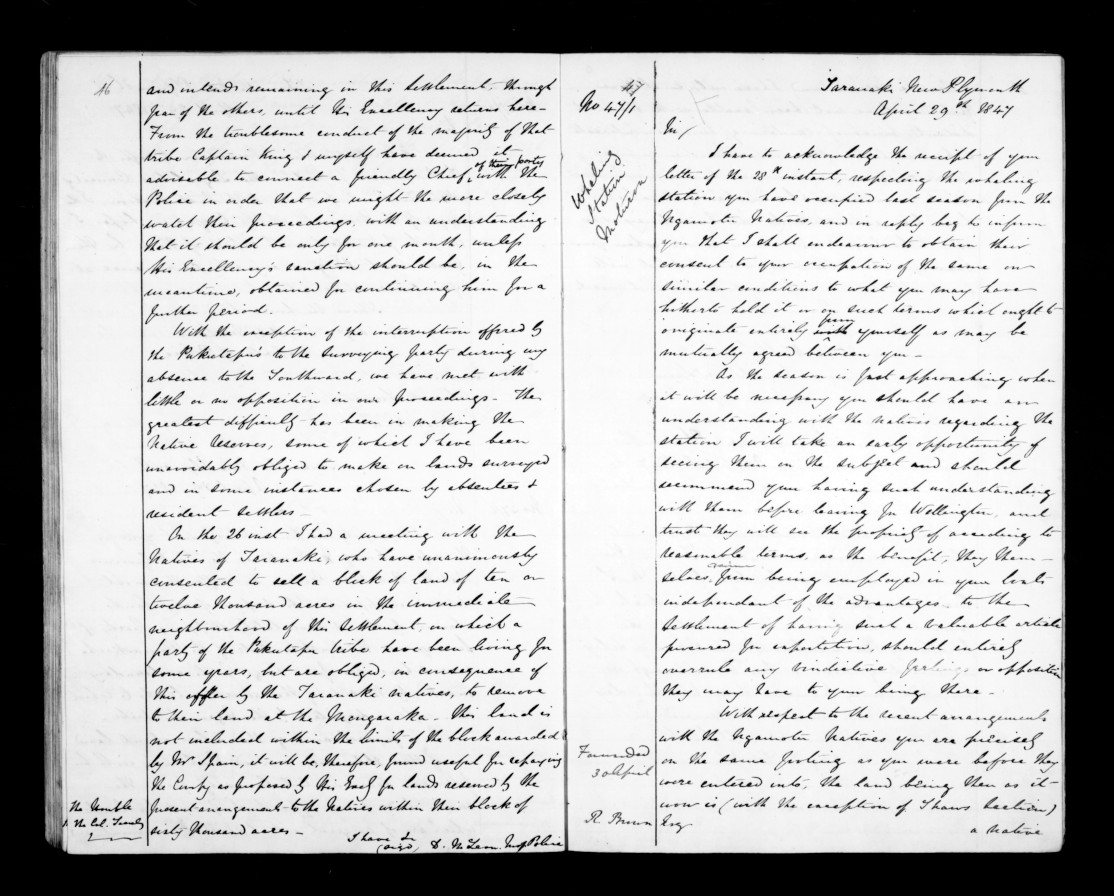 46
and intends remaining in this Settlement, through
fear of the others, until His Excellency returns here -
From the troublesome conduct of the majority of that
tribe Captain King & myself have deemed it
advisable to connect a friendly Chief, of their party with the
Police in order that we might the more closely
watch their proceedings, with an understanding
that it should be only for one month, unless
His Excellency's sanction should be, in the
meantime, obtained for continuing him for a
further period.
With the exception of the interruption offered by
the Puketapu's to the Surveying party during my
absence to the Southward, we have met with
little or no opposition in our proceedings - The
greatest difficulty has been in making the
Native reserves, some of which I have been
unavoidably obliged to make on lands surveyed
and in some instances chosen by absentees &
resident settlers -
On the 26 inst I had a meeting with the
Natives of Taranaki, who have unanimously
consented to sell a block of land of ten or
twelve thousand acres in the immediate
neighbourhood of this Settlement, on which a
party of the Puketapu tribe have been living for
some years, but are obliged, in consequence of
this offer by the Taranaki natives, to remove
to their land at the Mongaraka. This land is
not included within the limits of the block awarded
by Mr Spain, it will be, therefore, found useful for repaying
the Compy as proposed by His Excy for lands reserved by the
present arrangement to the Natives within their block of
sixty thousand acres -
The Honble
The Col. Secrety
I have &c
(sigd) D. McLean. Insp Police
47
No 47/1
Whaling
Station
Moturoa
Taranaki New Plymouth
April 29th 1847
Sir/
I have to acknowledge the receipt of your
letter of the 28th instant, respecting the whaling
station you have occupied last season from the
Ngamotu Natives, and in reply beg to inform
you that I shall endeavour to obtain their
consent to your occupation of the same on
similar conditions to what you may have
hitherto held it or on such terms which ought to
originate entirely with from yourself as may be
mutually agreed between you -
As the season is fast approaching when
it will be necessary you should have an
understanding with the natives regarding the
station I will take an early opportunity of
seeing them on the subject and should
recommend your having such understanding
with them before leaving for Wellington, and
trust they will see the propriety of acceding to
reasonable terms, as the benefit, they them-
selves, from being employed in your boats
independant of the advantages to the
Settlement of having such a valuable article
procured for exportation, should entirely
overrule any vindictive feelings or opposition
they may have to your being there -
With respect to the recent arrangements
with the Ngamotu Natives you are precisely
on the same footing as you were before they
were entered into, the land being then as it
now is (with the exception of Shaws Section)
a native
Forwarded
30 April
R. Brown Esq